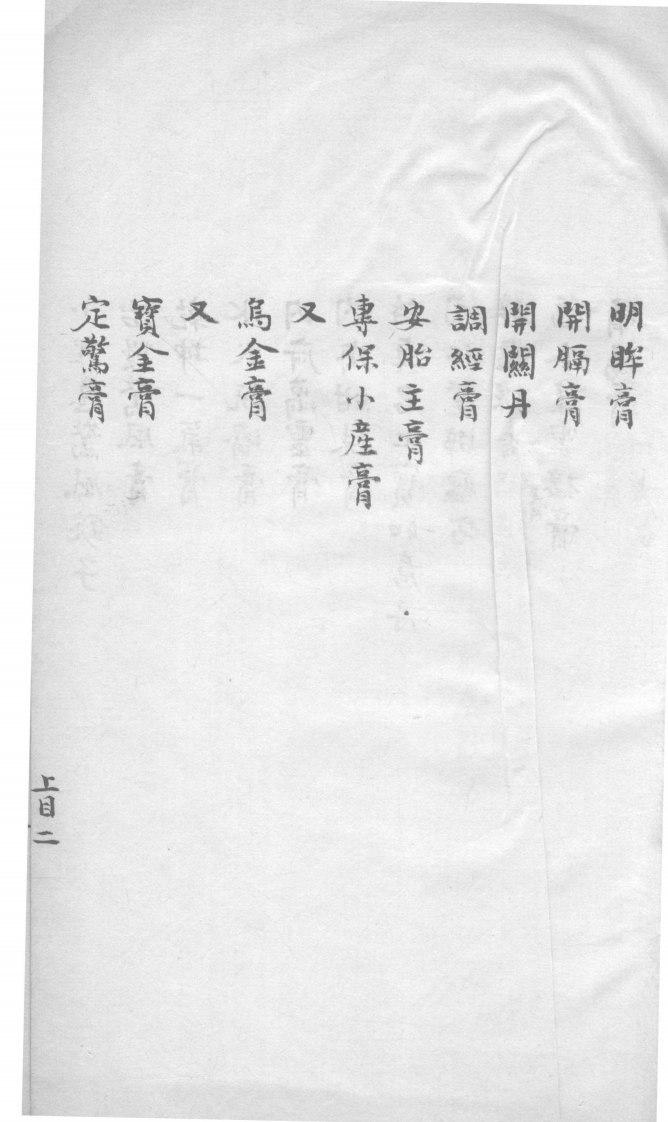 明眸膏
開膈膏
開關丹
調經膏
安胎主膏
專保小產膏
又
烏金膏
又
寶金膏
定驚膏
上目二